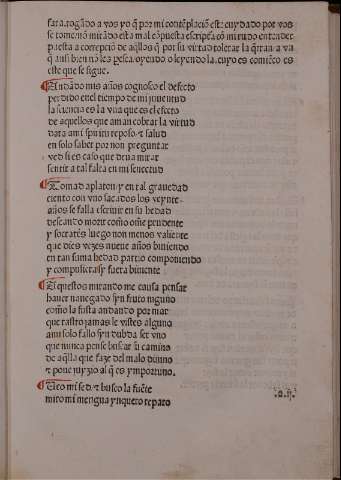 fara. rogãdo a vos yo q̃ por mi contẽplacion est: cuydado por vos
se tome no mirãdo esta mal cõpuesta
puesta a correpciõ de aq̃llos q̃ por su virtud tolerar la q̃rran. a vn
q̃ ansi bien nõ les oyendo o leyendo la. cuyo es comiẽço es
este que se sigue.
Andãdo mis años cognosco el defecto
perdido enel tiempo de mi juuentud
la sciencia es la vna que es el efecto
de aquellos que aman cobrar la virtud
dara a mi spũ reposo. & salud
en solo saber por non preguntar
ved si es caso que deua mirar
sentir a tal falta en mi senectud
Tomad a platon. y en tal grauedad
ciento con vno sacados los veynte.
años se falla escriuir en su hedad
descando morir como oñe prudente
y socrates luego non menos valiente
que dies vezes nueue años biuiendo
en tan suma hedad partio componiendo
y compusieras y fuera biuiente
Aquestos mirando me causa pensar
hauer nauegado syn fruto niguno
como la fusta andando por mar
que rastro jamas le vistes alguno
ami solo fallo syn dubda ser vno
que nunca pense buscar su camino
de aq̃lla que faze del malo diuino
& pone juyzio al q̃ es ynportuno.
Veo mi sed. & busco la fuẽte
miro mi mengua y nquero reparo
.a.ij.